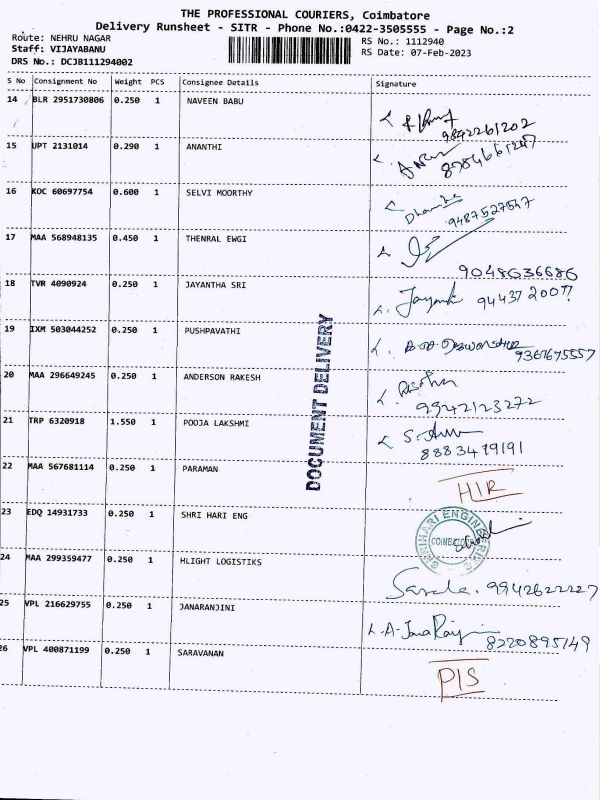 THE PROFESSIONAL COURIERS, Coimbatore
Delivery Runsheet - SITR - Phone No.:0422-3505555 - Page No.:2
Route: NEHRU NAGAR
Staff: VIJAYABANU
DRS No.: DCJB111294002
RS No.: 1112940
RS Date: 07-Feb-2023
S No Consignment No Weight PCS Consignee Details Signature
14 BLR 2951730806 0.250 1 NAVEEN BABU
9842261202
15 UPT 2131014 0.290 1 ANANTHI
8784661247
16 KOC 60697754 0.600 1 SELVI MOORTHY
9487527547
17 MAA 568948135 0.450 1 THENRAL EWGI
9048636686
18 TVR 4090924 0.250 1 JAYANTHA SRI
944372007?
19 IXM 503044252 0.250 1 PUSHPAVATHI
9367675557
20 MAA 296649245 0.250 1 ANDERSON RAKESH
9942123272
21 TRP 6320918 1.550 1 POOJA LAKSHMI
8883419191
22 MAA 567681114 0.250 1 PARAMAN
HIR
23 EDQ 14931733 0.250 1 SHRI HARI ENG
SHRIHARI ENGINEERING
24 MAA 299359477 0.250 1 HLIGHT LOGISTIKS
Sarala. 9942622227
25 VPL 216629755 0.250 1 JANARANJINI
8220895149
26 VPL 400871199 0.250 1 SARAVANAN
PIS
DOCUMENT DELIVERY